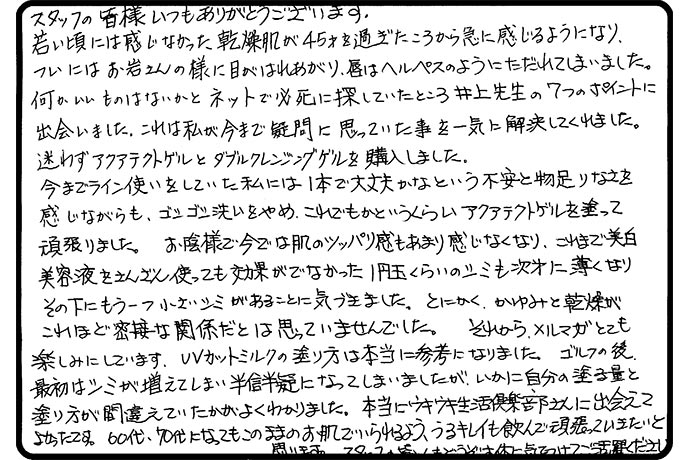 スタッフの皆様いつもありがとうございます。
若い頃には感じなかった乾燥肌が45才を過ぎたころから急に感じるようになり、
ついにはお岩さんの様に目がはれあがり、唇はヘルペスのようにただれてしまいました。
何かいいものはないかとネットで必死に探していたところ井上先生の7つのポイントに
出会いました。これは私が今まで疑問に思っていた事を一気に解決してくれました。
迷わずアクアテクトゲルとダブルクレンジングゲルを購入しました。
今までライン使いをしていた私には1本で大丈夫かなという不安と物足りなさを
感じながらも、ゴシゴシ洗いをやめ、これでもかというくらいアクアテクトゲルを塗って
頑張りました。 お陰様で今では肌のツッパリ感もあまり感じなくなり、これまで美白
美容液をさんざん使っても効果がでなかった1円玉くらいのシミも次才に薄くなり
その下にもう一つ小さいシミがあることに気づきました。とにかく、かゆみと乾燥が
これほど密接な関係だとは思っていませんでした。 それから、メルマガとても
楽しみにしています。UVカットミルクの塗り方は本当に参考になりました。ゴルフの後、
最初はシミが増えてしまい半信半疑になってしまいましたが、いかに自分の塗る量と
塗り方が間違えていたかがよくわかりました。本当にウキウキ生活倶楽部さんに出会えて
よかったです。60代、70代になってもこのままのお肌でいられるよう、うるキレイも飲んで頑張っていきたいと
思います。スタッフの皆さんもどうぞお体に気をつけてご活躍ください